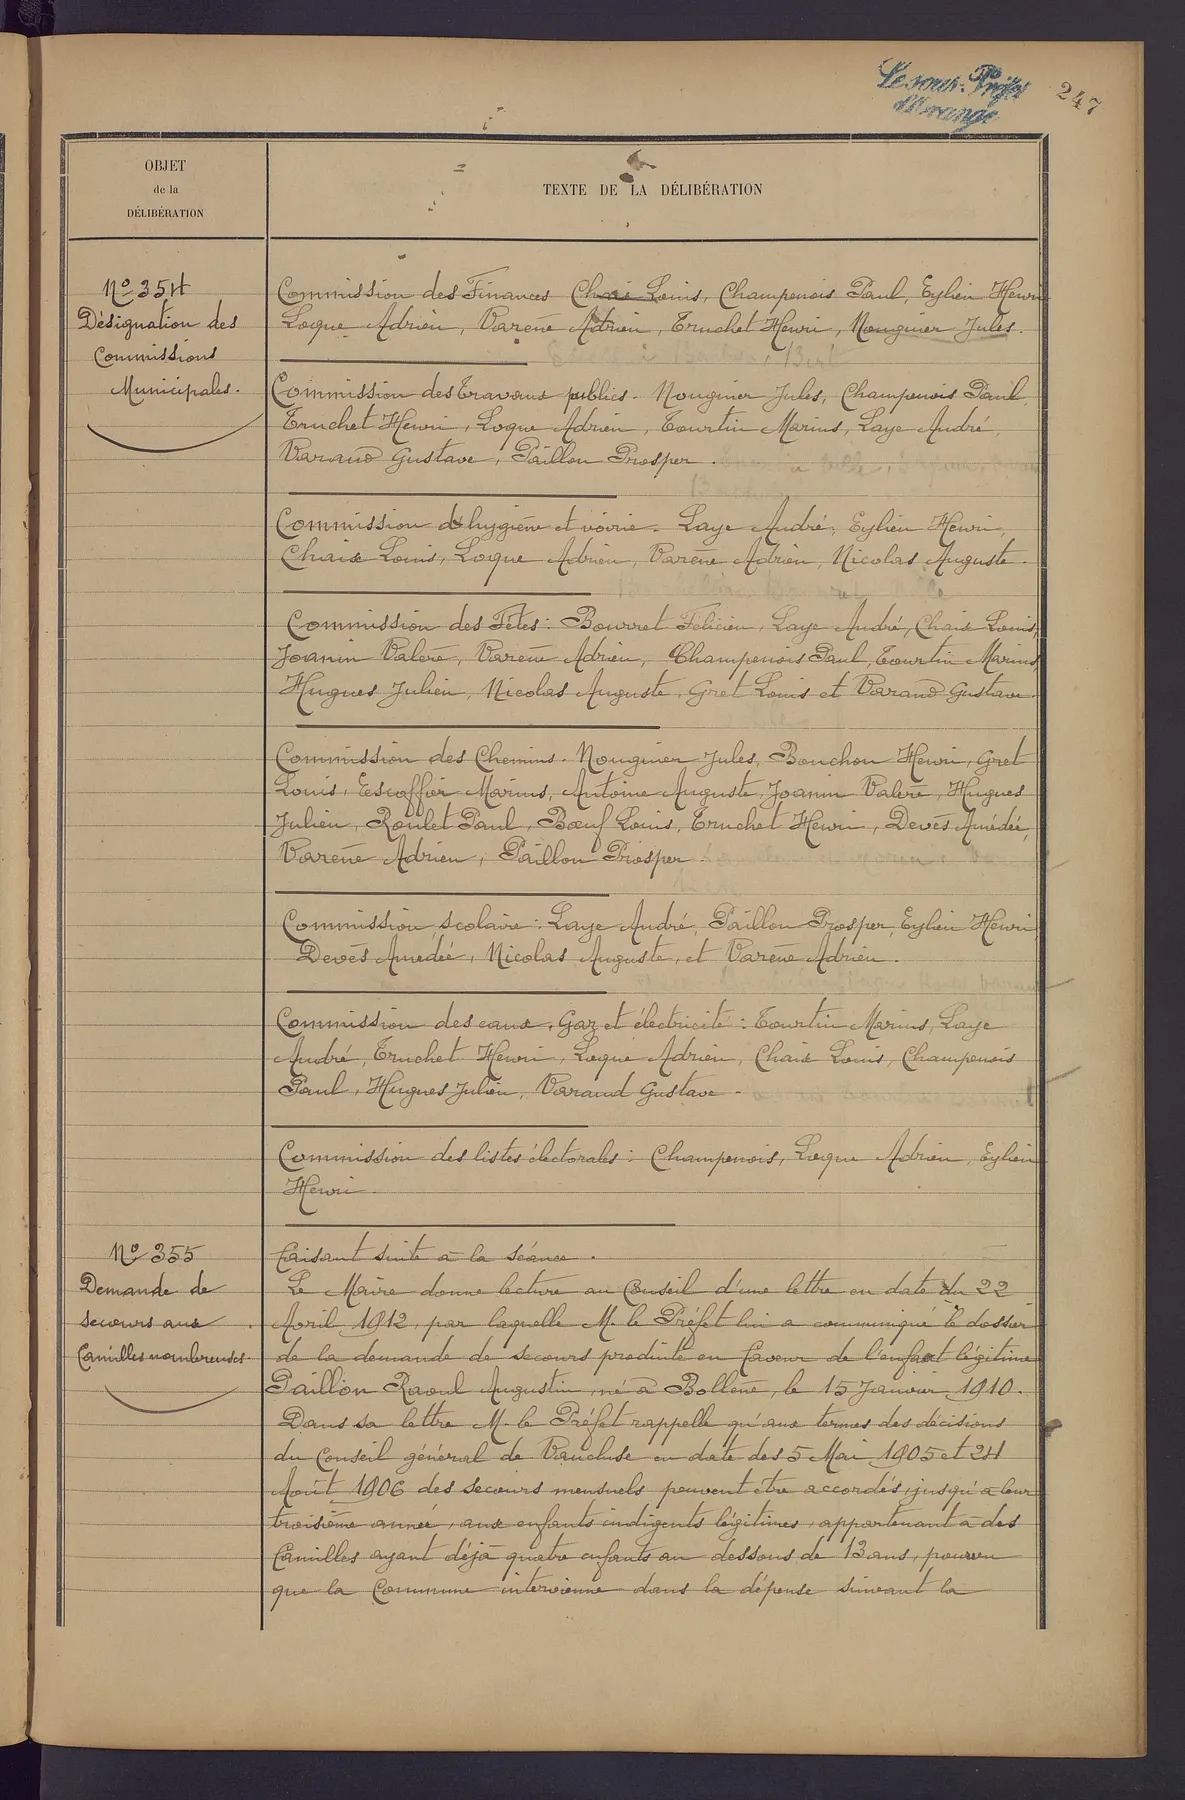 Le sous-Préfet
d'Orange
247
OBJET
de la
DÉLIBÉRATION
TEXTE DE LA DÉLIBÉRATION
N° 354
Désignation des
Commissions
Municipales.
Commission des Finances Chaix Louis, Champenois Paul, Eylieu Henri
Loque Adrien, Varène Adrien, Truchet Henri, Nouguier Jules.
Commission des Travaux publics. Nouguier Jules, Champenois Paul,
Truchet Henri, Loque Adrien, Tourtin Marius, Laye André,
Varaud Gustave, Paillon Prosper.
Commission d'hygiène et voirie. Laye André, Eylieu Henri,
Chaix Louis, Loque Adrien, Varène Adrien, Nicolas Auguste.
Commission des Fêtes : Bourret Félicien, Laye André, Chaix Louis,
Joanin Valère, Varène Adrien, Champenois Paul, Tourtin Marius,
Hugues Julien, Nicolas Auguste, Gret Louis et Varaud Gustave.
Commission des Chemins. Nouguier Jules, Bouchon Henri, Gret
Louis, Escoffier Marius, Antoine Auguste, Joanin Valère, Hugues
Julien, Roulet Paul, Bœuf Louis, Truchet Henri, Devès Amédée,
Varène Adrien, Paillon Prosper.
Commission scolaire : Laye André, Paillon Prosper, Eylieu Henri,
Devès Amédée, Nicolas Auguste, et Varène Adrien.
Commission des eaux, Gaz et électricité : Tourtin Marius, Laye
André, Truchet Henri, Loque Adrien, Chaix Louis, Champenois
Paul, Hugues Julien, Varaud Gustave.
Commission des listes électorales : Champenois, Loque Adrien, Eylieu
Henri.
N° 355
Demande de
secours aux
familles nombreuses.
Faisant suite à la séance.
Le Maire donne lecture au Conseil d'une lettre en date du 22
Avril 1912, par laquelle M. le Préfet lui a communiqué le dossier
de la demande de secours produite en faveur de l'enfant légitime
Paillon Raoul Augustin, né à Bollène, le 15 Janvier 1910.
Dans sa lettre M. le Préfet rappelle qu'aux termes des décisions
du Conseil général de Vaucluse en date des 5 Mai 1905 et 24
Août 1906 des secours mensuels peuvent être accordés, jusqu'à leur
troisième année, aux enfants indigents légitimes, appartenant à des
familles ayant déjà quatre enfants au dessous de 13 ans, pourvu
que la Commune intervienne dans la dépense suivant la